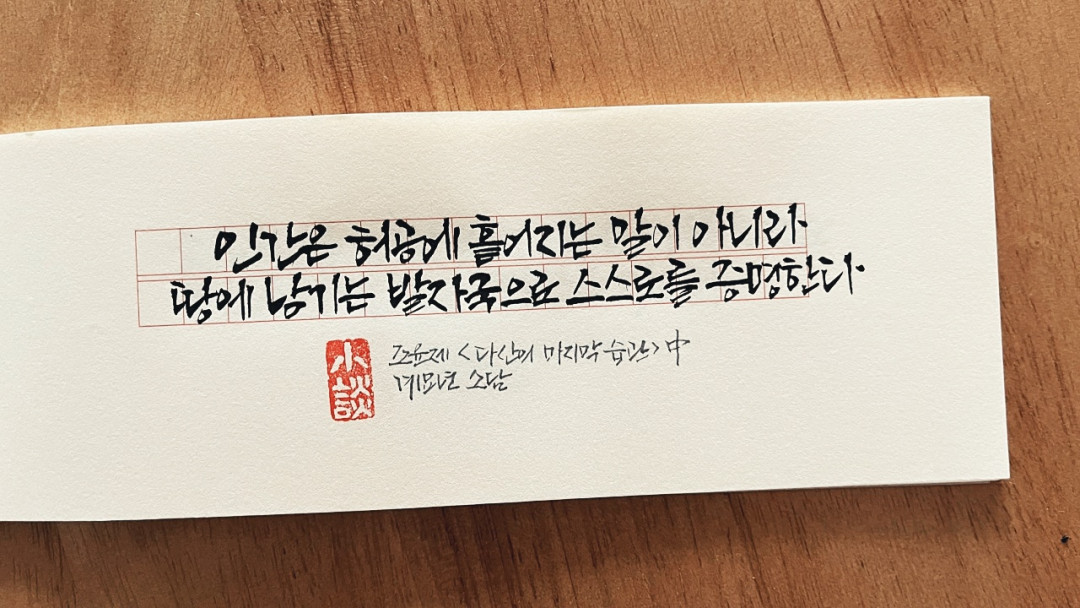 인간은 허공에 흩어지는 말이 아니라
땅에 남기는 발자국으로 스스로를 증명한다.
조윤제 <다산의 마지막 습관> 中
계묘년 소담
小談